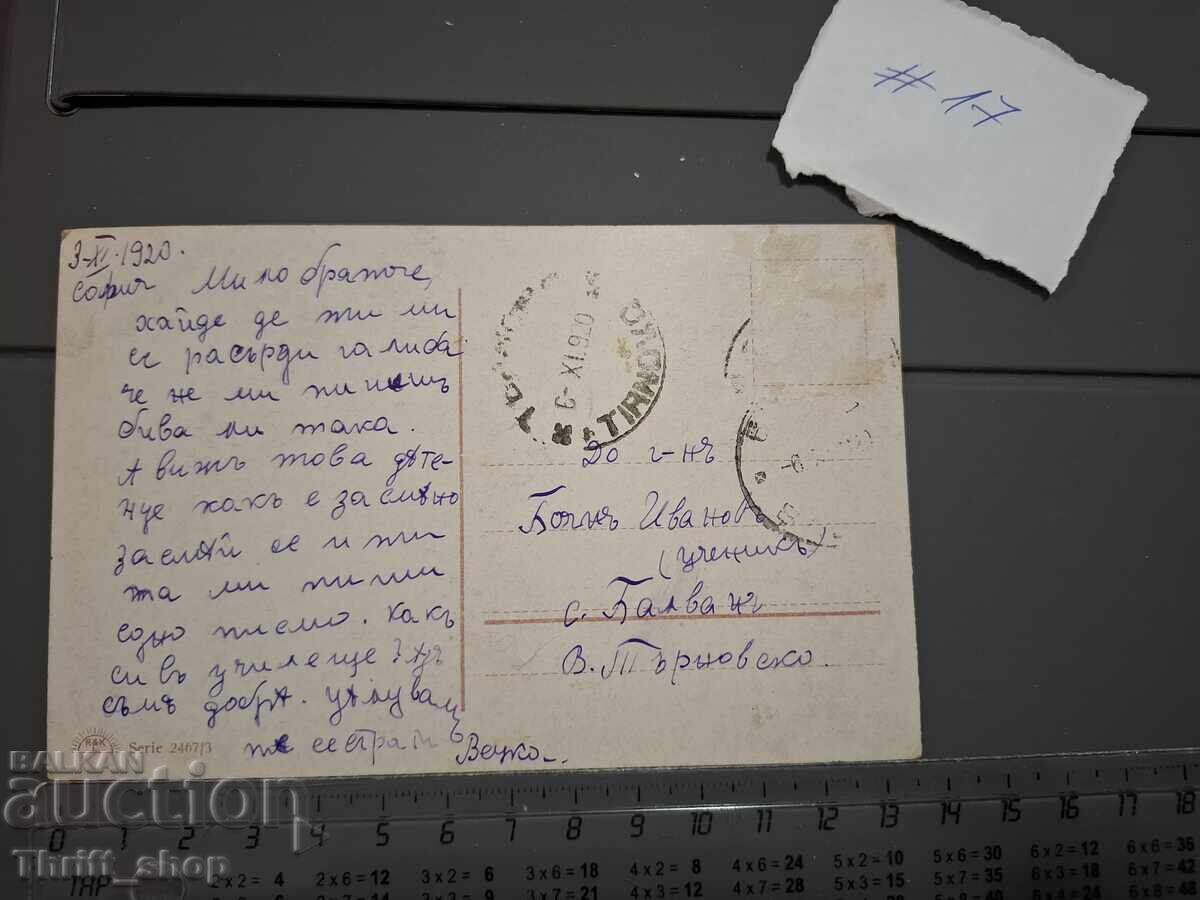 # 17
3-XI-1920.
София Мило братче,
хайде де ти ми
се расърди галиба
че не ми пишешъ
бива ли така.
А вижъ това дѣте-
нце какъ е заспѣло
се и ти
та ми пиши
едно писмо. Какъ
си въ училеще? Азъ
съмъ добрѣ. Цѣлувамъ
те сестра ти Вецка.
6-XI.920
TIRNOVO
До г-нъ
Иванов
(ученикъ)
с. Балванъ
В. Търновско.
R&K
Serie 2467/3
BALKAN
auction
Thrift_shop
0 1 2 3 4 5 6 7 8 9 10 11 12 13 14 15 16 17 18
2 x 2 = 4 2 x 6 = 12 3 x 2 = 6 3 x 6 = 18 4 x 2 = 8 4 x 6 = 24 5 x 2 = 10 5 x 6 = 30 6 x 2 = 12 6 x 6 = 36
3 x 7 = 21 4 x 3 = 12 4 x 7 = 28 5 x 3 = 15 5 x 7 = 35 6 x 3 = 18 6 x 7 = 42